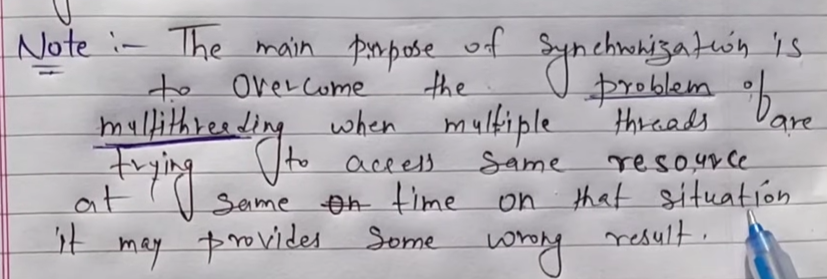 Note :- The main purpose of synchronization is
to overcome the problem of
multithreading when multiple threads are
trying to access same resource
at same on time on that situation
it may provides some wrong result.